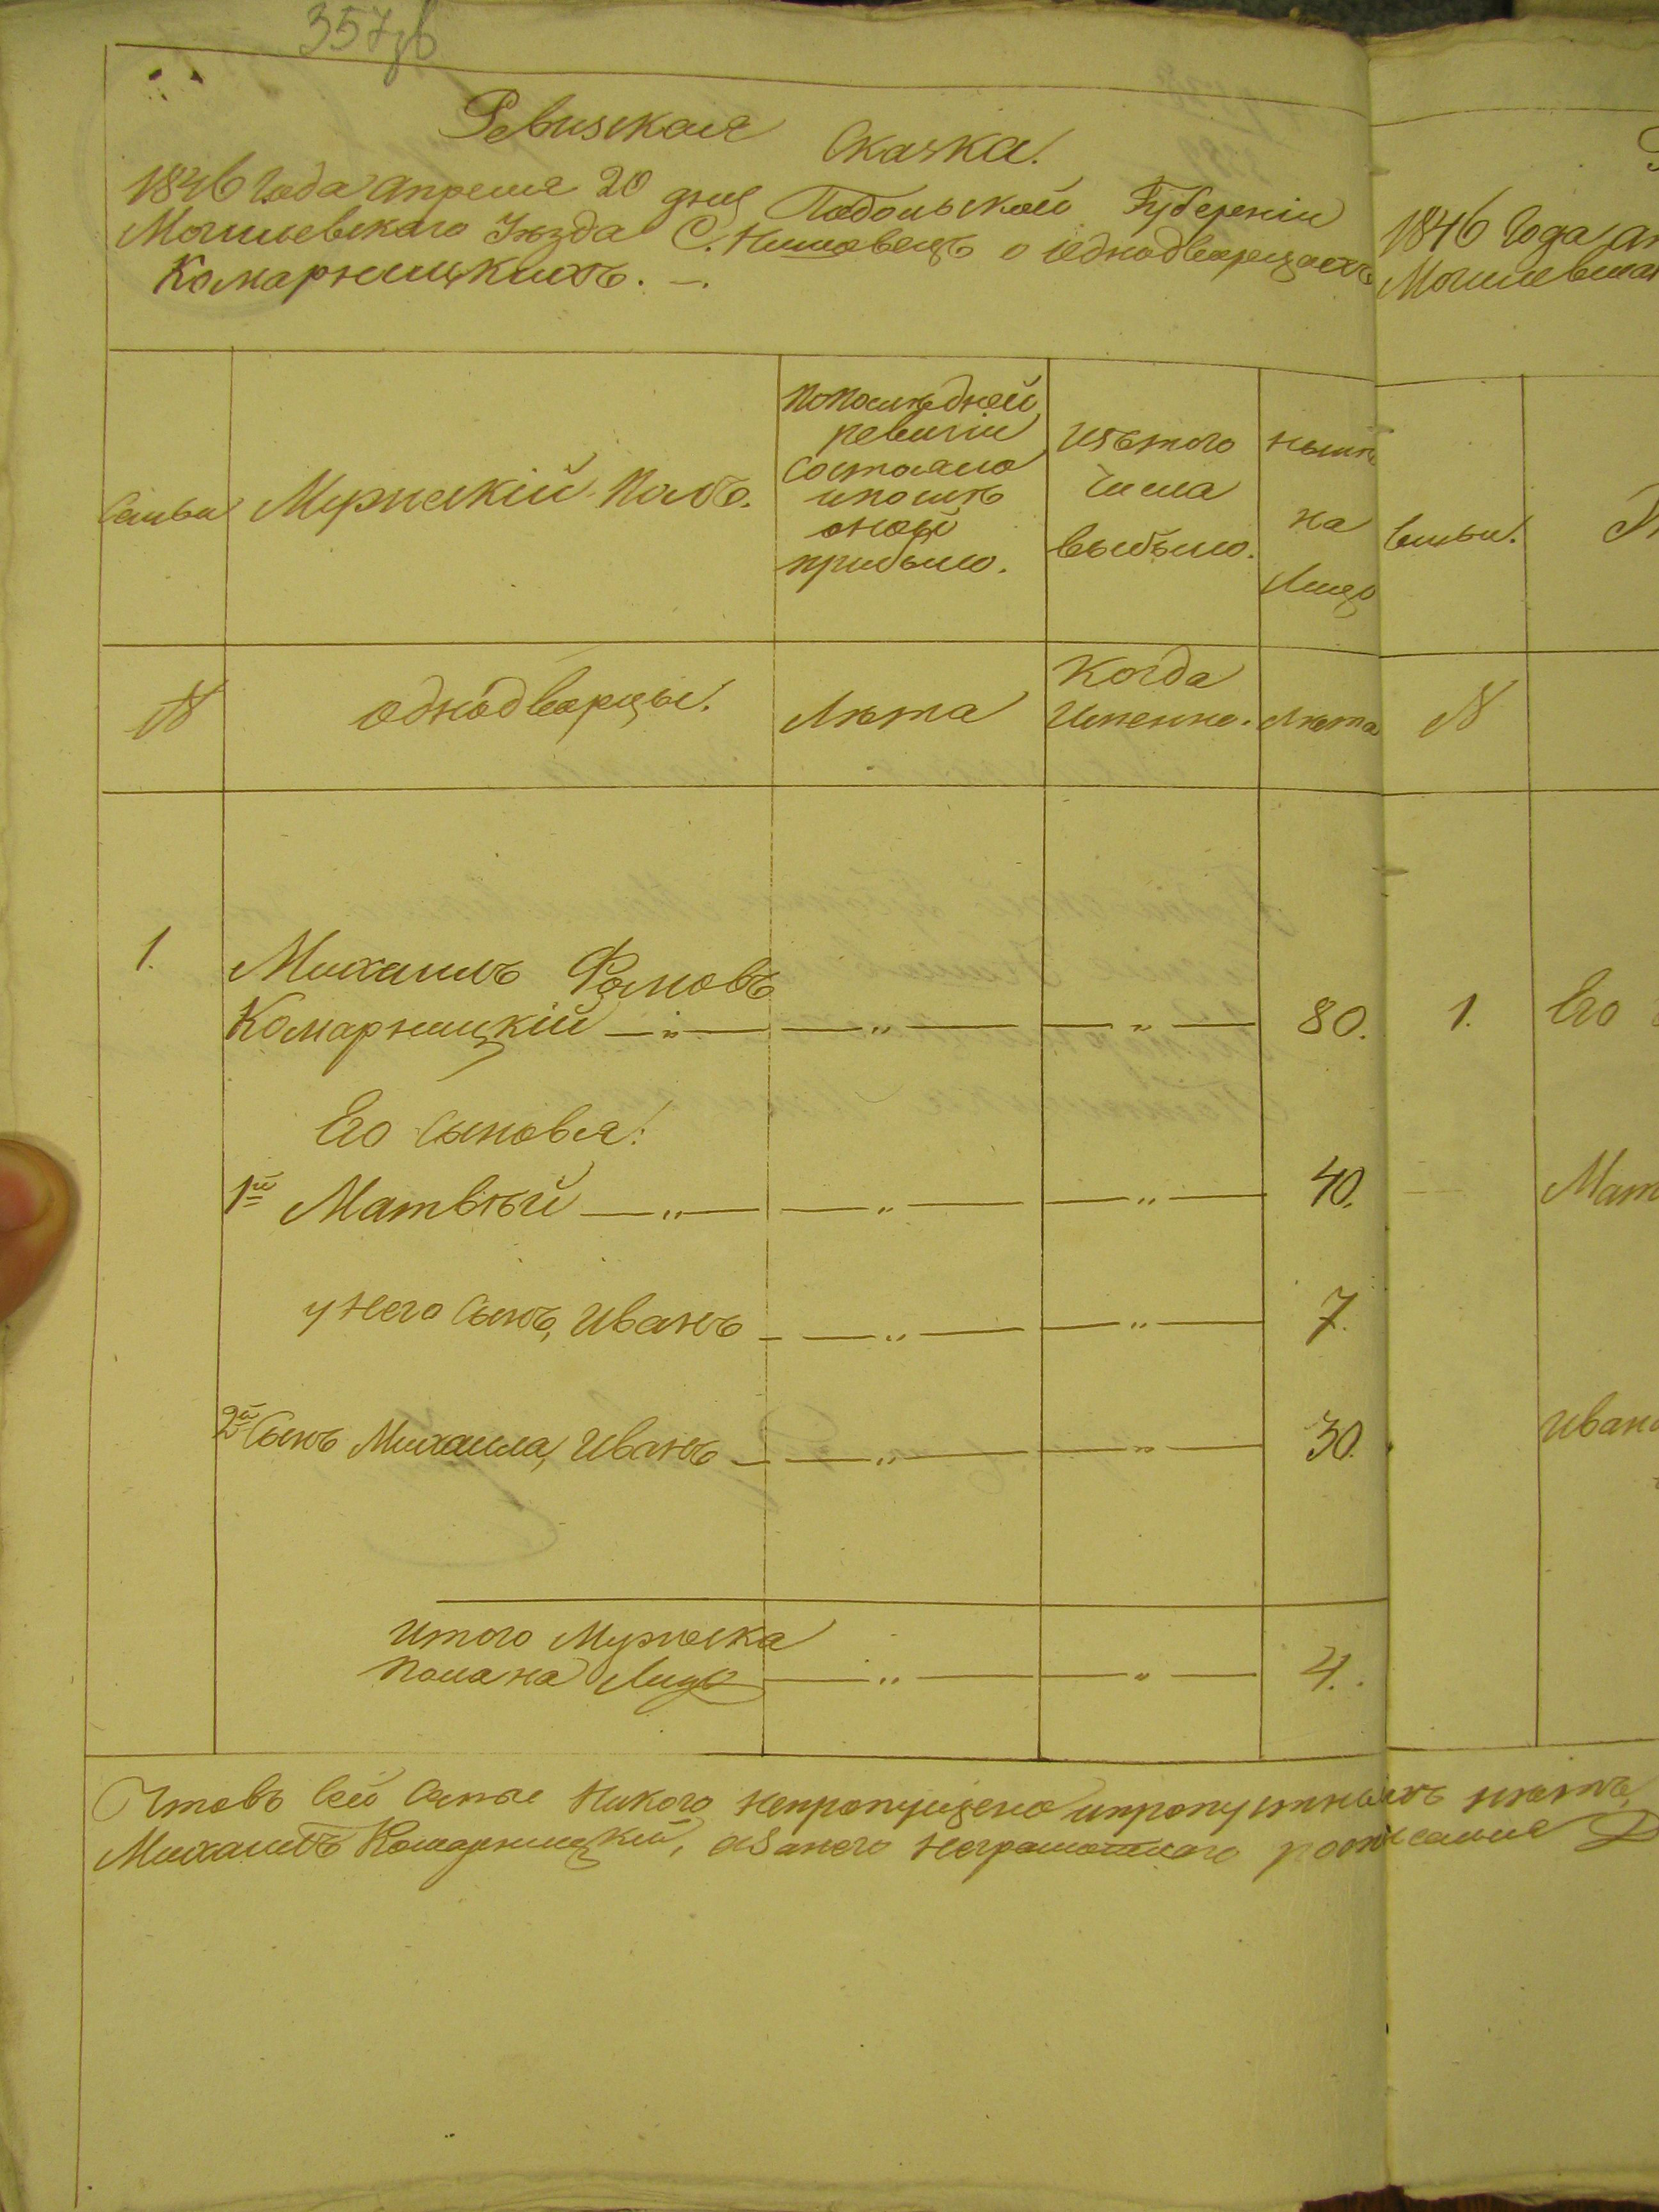 357
Ревизская Сказка.
1846 Года Апреля 20 дня Подольской Губерніи
Могилевскаго Уѣзда С. Нишовецъ о однодворцахъ
Комарницкихъ. —.
Семьи
Мужескій Полъ.
Попослѣдней
ревизіи
Состояло
ипослѣ
оной
прибыло.
Изътого
Числа
выбыло.
нынѣ
на
Лицо
№
однодворцы.
Лѣта
Когда
Именно.
Лѣта
1.
Михаилъ
Комарницкій — „ — — „ — — „ — 80.
Его Сыновья:
1й Матвѣй — „ — — „ — — „ — 40.
у Него Сынъ, Иванъ — — „ — — „ — 7.
2й Сынъ Михаила, Иванъ — — „ — — „ — 30.
Итого Мужеска
Пола на Лицо — „ — — „ — 4.
Чтовъ Сей Семье Никого Непропущено ипропущенныхъ нѣтъ,
Михаилъ Комарницкій, азанего Неграмотнаго росписался
1846 Года Ап
Могилевскаг
Семьи.
№
1. Его
Матв
Ивана